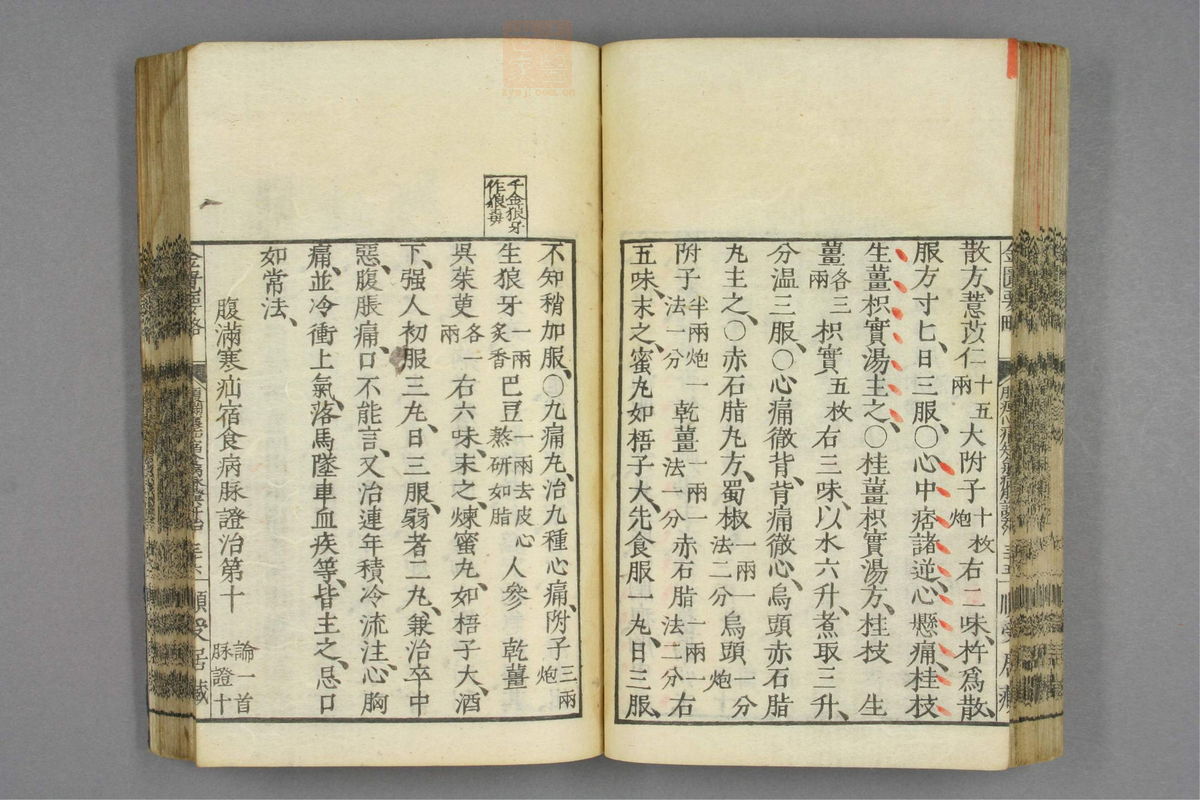 金匱要略
順受居藏
散方、薏苡仁十五兩大附子十枚炮右二味、杵爲散、
服方寸匕日三服、〇心中痞諸逆、心懸痛桂枝
生薑枳實湯主之、〇桂薑枳實湯方、桂枝 生
薑各三兩枳實五枚右三味、以水六升、煮取三升、
分温三服、〇心痛徹背、背痛徹心、烏頭赤石脂
丸主之、〇赤石脂丸方、蜀椒一兩一法二分烏頭一分炮
附子半兩炮一法一分乾薑一兩一法一分赤石脂一兩一法二分右
五味、末之、蜜丸如梧子大、先食服一丸、日三服、
千金狼牙
作狼毒
不知稍加服、〇九痛丸、治九種心痛、附子三兩炮
生狼牙一兩炙香巴豆一兩去皮心熬研如脂人參 乾薑
吳茱萸各一兩右六味、末之、煉蜜丸、如梧子大、酒
下、强人初服三丸、日三服、弱者二丸、兼治卒中
惡、腹脹痛、口不能言、又治連年積冷流注、心胸
痛、並冷衝上氣、落馬墜車血疾等、皆主之、忌口
如常法、
腹滿寒疝宿食病脉證治第十論一首脉證十
金匱要略
順受居藏